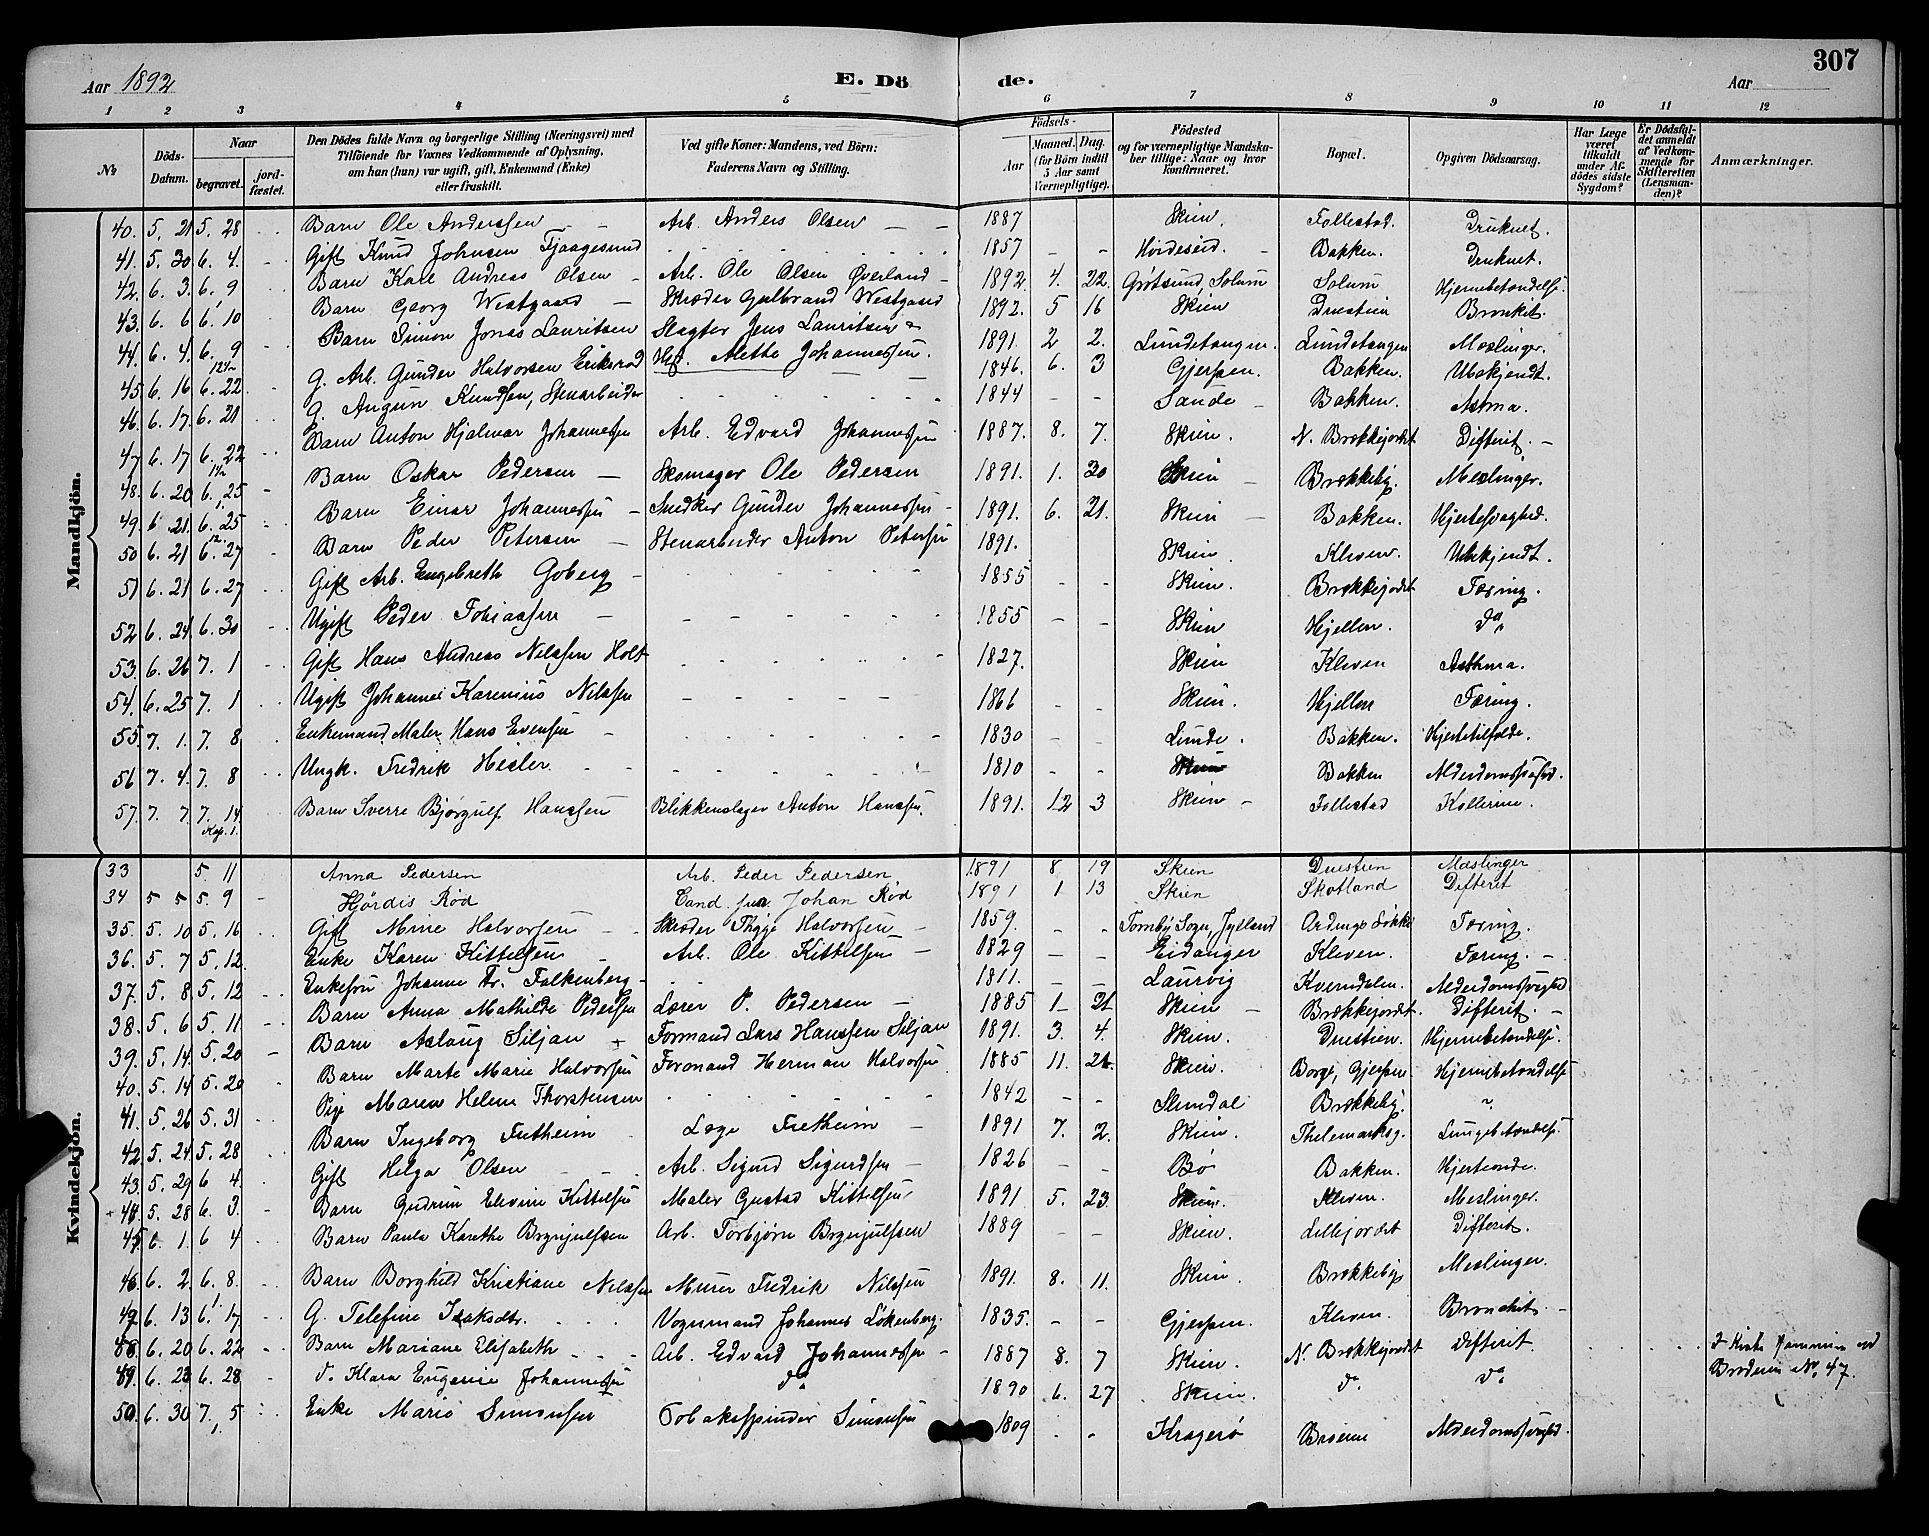 307
Aar 1892
E. Dö
de.
Aar
1 2 3 4 5 6 7 8 9 10 11 12
No
Döds-Datum.
Naar
begravet.
jord-fæstet.
Den Dödes fulde Navn og borgerlige Stilling (Næringsvei) med
Tilföiende for Voxnes Vedkommende af Oplysning,
om han (hun) var ugift, gift, Enkemand (Enke)
eller fraskilt.
Ved gifte Koner: Mandens, ved Börn:
Faderens Navn og Stilling.
Födsels-
Aar
Maaned. Dag.
(for Börn indtil
5 Aar samt
Værnepligtige).
Födested
og for værnepligtige Mandska-
ber tillige: Naar og hvor
konfirmeret.
Bopæl.
Opgiven Dödsaarsag.
Har Læge
været
tilkaldt
under Af-
dödes sidste
Sygdom?
Er Dödsfal-
det anmeldt
af Vedkom-
mende for
Skifteretten
(Lensman-
den)?
Anmærkninger.
Mandkjön.
40. 5. 21 5. 28 Barn Ole Anderssen Arb. Anders Olsen 1887 Skien, Follestad. Druknet.
41. 5. 30 6. 4. Gift Knud Johnsen Fjaagesund 1857 Hvideseid. Bakken. Druknet.
42. 6. 3. 6. 9 Barn Karl Andreas Olsen Arb. Ole Olsen Øverland 1892 4. 22. Grøtsund, Solum Solum Hjernebetændelse.
43. 6. 6 6. 10 Barn Georg Westgaard Skræder Gulbrand Westgaard 1892. 5 16 Skien Duestien Bronkit.
44. 6. 4. 6. 9 Barn Simon Jonas Lauritsen Slagter Jens Lauritsen 1891. 2 2. Lundetangen. Lundetangen Meslinger.
45. 6. 16 6. 22. G. Arb. Gunder Halvorsen Eriksrød Alette Johannessen. 1846. 6. 3 Gjerpen. Bakken. Ubekjendt.
46. 6. 17. 6. 21 G. Augun Knudsen, Stenarbeider 1844 Sande Bakken. Astma.
47 6. 17 6. 22 Barn Anton Hjalmar Johannessen Arb. Edvard Johannessen 1887. 8. 7. Skien. N. Brækkejordet Difterit.
48. 6. 20 6. 25 Barn Oskar Pedersen Skomager Ole Pedersen 1891. 1. 30 Skien Brækkeby. Meslinger.
49 6 21. 6. 25 Barn Einar Johannessen Snedker Gunder Johannessen 1891. 6. 21. Skien Bakken. Hjertesvaghed.
50 6. 21 6. 27 Barn Peder Petersen Stenarbeider Anton Petersen 1891. Skien Kleven. Ubekjendt.
51 6. 21 6. 27 Gift Arb. Engebreth Goberg 1855 Skien. Brækkejordet Tæring.
52 6. 24 6. 30 Ugift Peder Tobiassen 1855 Skien Hjellen. Do
53. 6. 26 7. 1 Gift Hans Andreas Nilssen Holt 1827. Skien Kleven Asthma.
54. 6. 25 7. 1 Ugift Johannes Karenius Nilssen 1866 Skien. Hjellen Tæring.
55. 7. 1. 7. 8 Enkemand Maler Hans Evensen 1830 Lunde. Bakken. Hjertetilfælde.
56 7. 4. 7. 8 Ungk. Fredrik Hesler 1810 Skien Bakken Alderdomssvaghed.
57. 7. 7. 7. 14 Kap. 1. Barn Sverre Bjørgulf Hanssen Blikkenslager Anton Hanssen. 1891. 12 3 Skien Follestad Kollerine.
Kvindekjön.
33 5 11 Anna Pedersen Arb. Peder Pedersen 1891 8 19 Skien Duestien Mæslinger
34 5 5 5. 9 Hjördis Rød Cand. Johan Rød 1891 1 13 Skien Skotland Difterit
35. 5. 10 5. 16 Gift Mine Halvorsen Skræder Thyge Halvorsen 1859. Tornby Sogn, Jylland Tæring.
36. 5. 7 5. 12. Enke Karen Kittelsen Arb. Ole Kittelsen 1829 Eidanger Kleven. Tæring.
37. 5. 8 5. 12 Enkefru Johanne Fr. Falkenberg 1811. Laurvig Kverndalen. Alderdomssvaghed
38. 5. 6 5. 11 Barn Anna Mathilde Pedersen Lærer P. Pedersen 1885 1 21 Skien Brækkejordet. Difterit.
39. 5. 14. 5. 20 Barn Aslaug Siljan Formand Lars Hanssen Siljan 1891. 3. 4. Skien. Duestien. Hjernebetændelse.
40. 5. 14 5. 20 Barn Marte Marie Halvorsen Formand Herman Halvorsen 1885 11. 26. Skien. Borge, Gjerpen Hjernebetændelse
41. 5. 26 5. 31 Pige Maren Helene Thorstensen 1842 Slemdal Brækkeby. "
42 5. 24 5. 28 Barn Ingeborg Fretheim Læge Fretheim 1891 7. 2. Skien. Thelemarksg. Lungebetændelse.
43. 5. 29 6 4. Gift Helga Olsen Arb. Sigurd Sigurdsen 1826 Bø Bakken. Hjerteonde.
+ 44. 5. 28 6. 3. Barn Gudrun Elevine Kittelsen Maler Gustav Kittelsen 1891 5. 23. Skien. Kleven. Meslinger.
45 6. 1. 6 4 Barn Paula Karethe Brynjulfsen Arb. Torbjørn Brynjulfsen 1889 Skien. Lillejordet Difterit.
46 6. 2. 6. 8. Barn Borghild Kristiane Nilssen Murer Fredrik Nilssen 1891. 8. 11. Skien. Brækkeby Meslinger.
47 6. 13 6. 17 G. Telefine Isaksdtr. Vognmand Johannes Løkenberg. 1835. Gjerpen. Kleven. Bronchit.
48 6. 20 6. 22 Barn Mariane Elisabeth Arb. Edvard Johannessen 1887 8. 7 Skien. N. Brækkejordet Difterit I Kiste sammen med
49. 6. 23 6. 28 do Klara Eugenie Johannessen do 1890 6. 27 Skien. do do Broderen No. 47.
50 6. 30 7. 5 Enke Marie Simonsen Tobaksspinder Simonsen 1809 Kragerø Brøerne Alderdomssvaghed